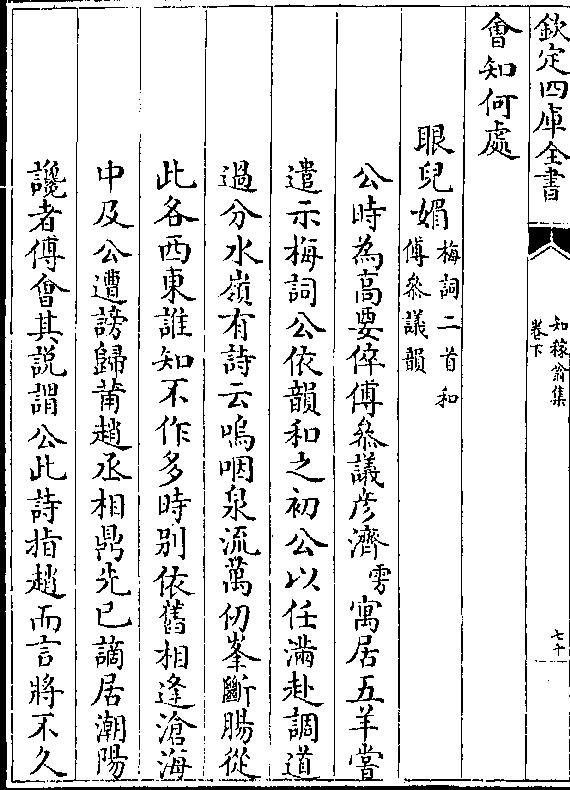 欽定四庫全書
知稼翁集
卷下
七十
會知何處
眼兒媚
梅詞二首和
傅叅議韻
公時為高要倅傅叅議彦濟雱寓居五羊嘗
遣示梅詞公依韻和之初公以任滿赴調道
過分水嶺有詩云嗚咽泉流萬仞峯斷腸從
此各西東誰知不作多時别依舊相逢滄海
中及公遭謗歸莆趙丞相鼎先已謫居潮陽
讒者傅會其説謂公此詩指趙而言將不久